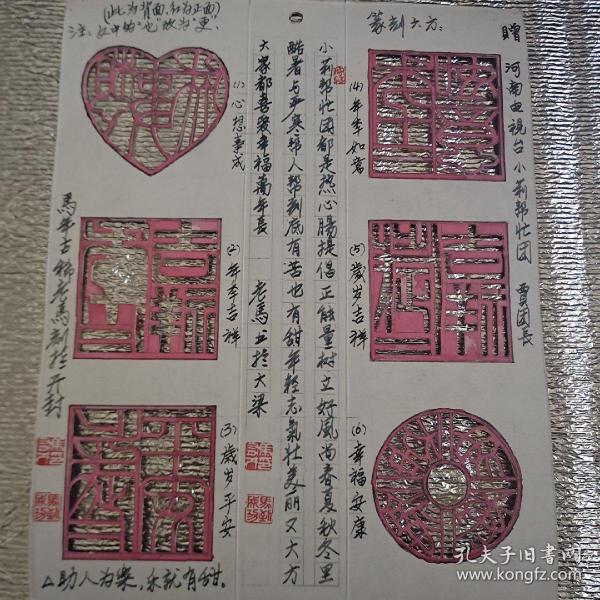 (此为背面,红为正面)
注:红中的"也"改为"更"
篆刻大方:
贈 河南电视台小莉帮忙团 曹团長
(4) 年年如意
(5) 歲岁吉祥
(6) 幸福安康
小莉帮忙团都是热心腸提倡正能量树立好風尚春夏秋冬里
酷暑与严寒帮人帮到底有苦也有甜年轻志氣壮美丽又大方
大家都喜爱幸福萬年長 老馬書於大梁
(1) 心想事成
(2) 年年吉祥
(3) 歲岁平安
馬年吉祥老馬刻於开封
△助人为樂,乐就有甜。
孔夫子旧书网
www.kongfz.com